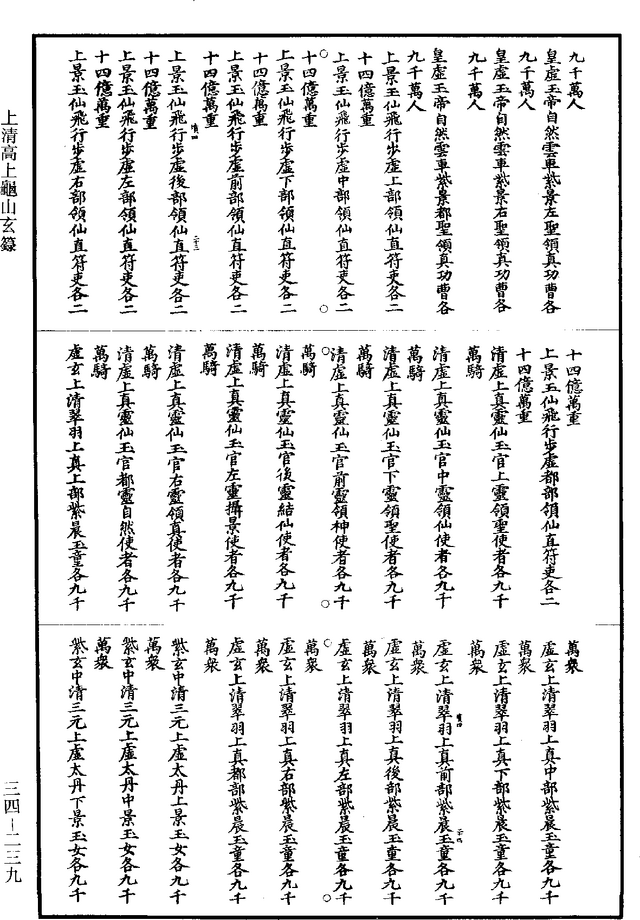 九千萬人
皇虛玉帝自然雲車紫景左聖領真功曹各
九千萬人
皇虛玉帝自然雲車紫景右聖領真功曹各
九千萬人
皇虛玉帝自然雲車紫景都聖領真功曹各
九千萬人
上景玉仙飛行步虛上部領仙直符吏各二
十四億萬重
上景玉仙飛行步虛中部領仙直符吏各二
十四億萬重
上景玉仙飛行步虛下部領仙直符吏各二
十四億萬重
上景玉仙飛行步虛前部領仙直符吏各二
十四億萬重
上景玉仙飛行步虛後部領仙直符吏各二
十四億萬重
上景玉仙飛行步虛左部領仙直符吏各二
十四億萬重
上景玉仙飛行步虛右部領仙直符吏各二
十四億萬重
上景玉仙飛行步虛都部領仙直符吏各二
十四億萬重
清虛上真靈仙玉官上靈領聖使者各九千
萬騎
清虛上真靈仙玉官中靈領仙使者各九千
萬騎
清虛上真靈仙玉官下靈領聖使者各九千
萬騎
清虛上真靈仙玉官前靈領神使者各九千
萬騎
清虛上真靈仙玉官後靈結仙使者各九千
萬騎
清虛上真靈仙玉官左靈攝景使者各九千
萬騎
清虛上真靈仙玉官右靈領真使者各九千
萬騎
清虛上真靈仙玉官都靈自然使者各九千
萬騎
虛玄上清翠羽上真上部紫晨玉童各九千
萬衆
虛玄上清翠羽上真中部紫晨玉童各九千
萬衆
虛玄上清翠羽上真下部紫晨玉童各九千
萬衆
虛玄上清翠羽上真前部紫晨玉童各九千
萬衆
虛玄上清翠羽上真後部紫晨玉童各九千
萬衆
虛玄上清翠羽上真左部紫晨玉童各九千
萬衆
虛玄上清翠羽上真右部紫晨玉童各九千
萬衆
虛玄上清翠羽上真都部紫晨玉童各九千
萬衆
紫玄中清三元上虛太丹上景玉女各九千
萬衆
紫玄中清三元上虛太丹中景玉女各九千
萬衆
紫玄中清三元上虛太丹下景玉女各九千
上清高上龜山玄籙
三四－二三九